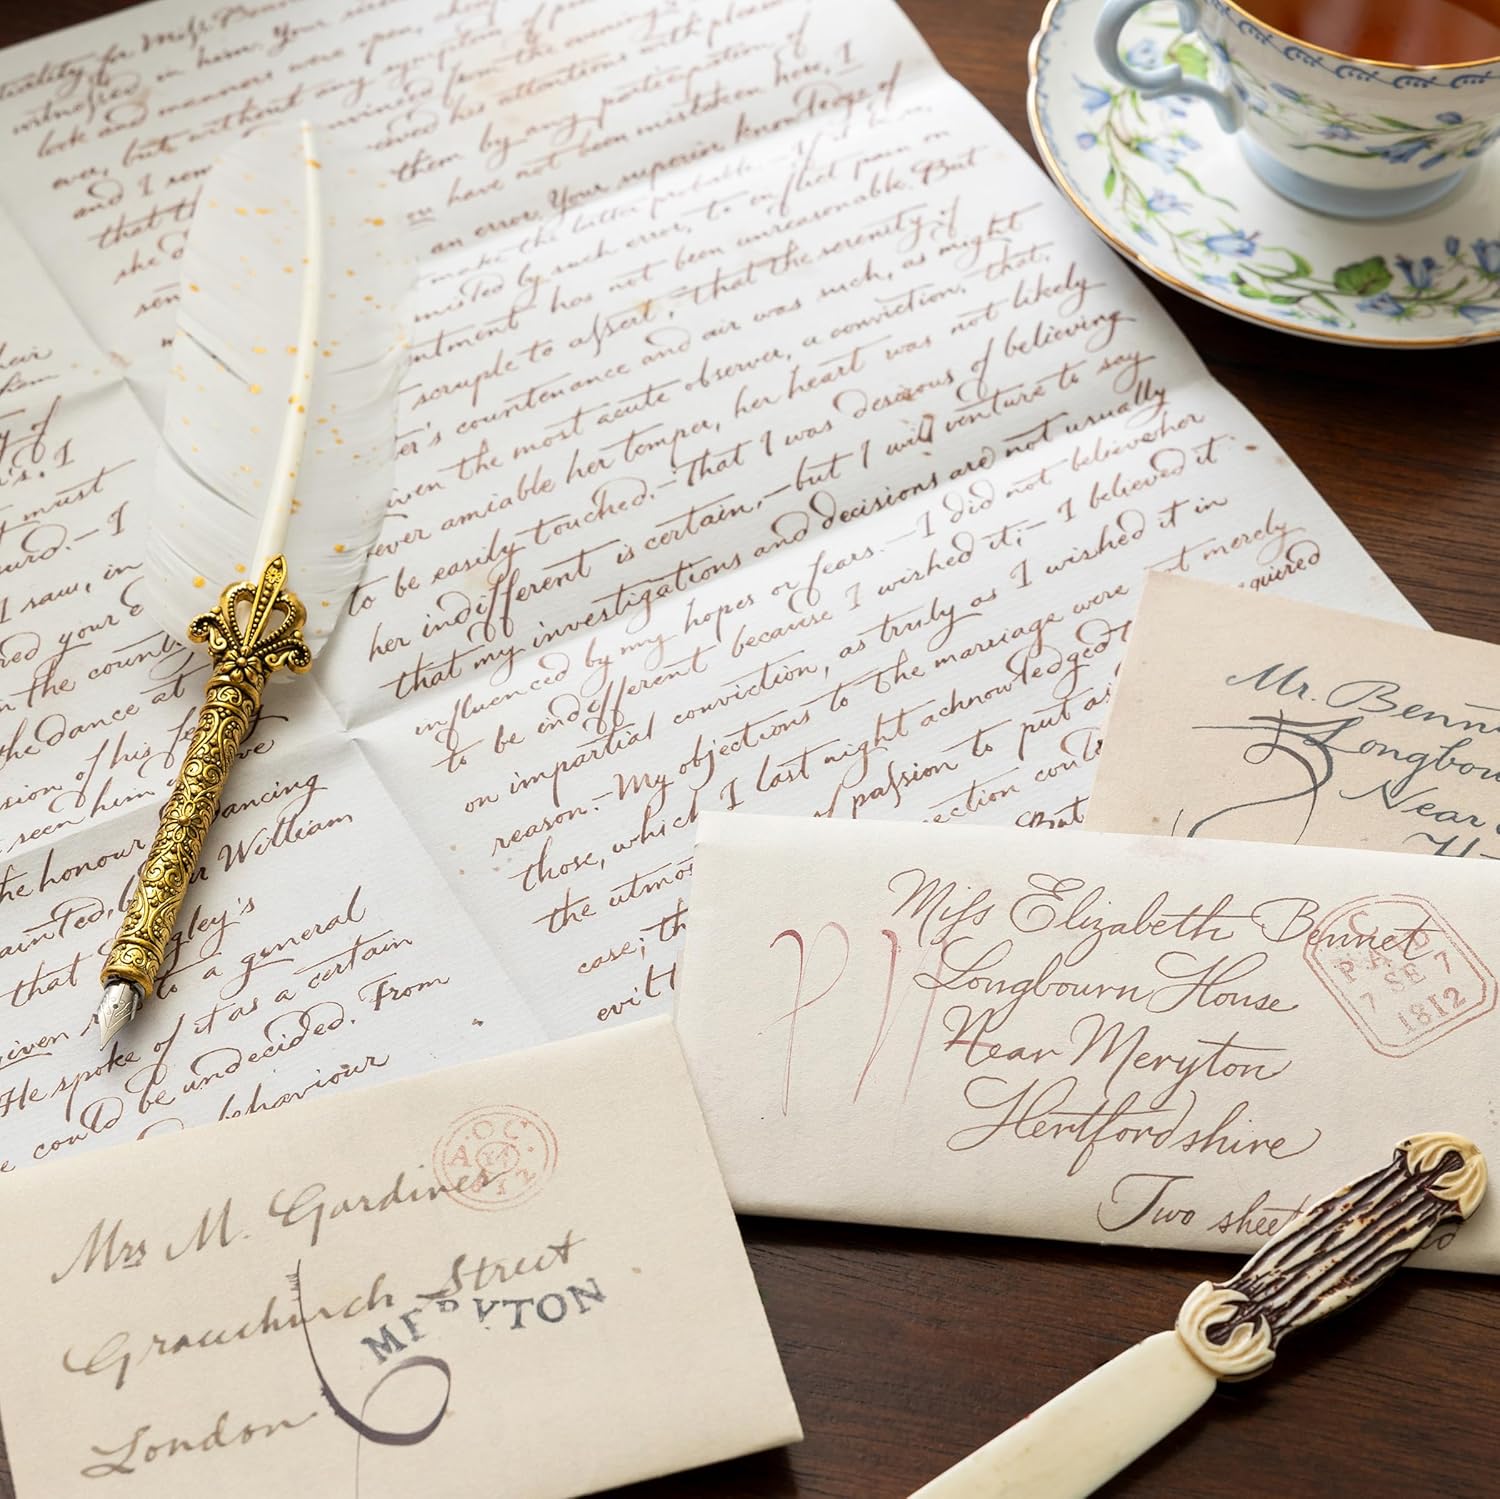 tiality for Miss
witnessed in him. Your
look and manners were open,
ever, but without any symptom of
and I
that
she
sen
from the evening's
his attentions with pleasure
them by any participation of
have not been mistaken here, I
an error. Your superior knowledge of
make the latter probable.—If it
misled by such error, to inflict pain on
ntment has not been unreasonable. But
scruple to assert, that the serenity of
er's countenance and air was such, as might
iven the most acute observer, a conviction, that,
ever amiable her temper, her heart was not likely
to be easily touched.—That I was desirous of believing
her indifferent is certain,—but I will venture to say
that my investigations and decisions are not usually
influenced by my hopes or fears.—I did not believe her
to be indifferent because I wished it;—I believed it
on impartial conviction, as truly as I wished it in
reason.—My objections to the marriage were not merely
those, which I last night acknowledged
the utmos passion to put as
case; th ection could
evil t But
quired
heir
y of
I
must
urd.—I
I saw, in
red your
n the country
the dance at
sion of his
seen him
the honour ancing
ainted, b r William
that gley's
given to a general
He spoke of it as a certain
could be undecided. From
behaviour
Mr. Benn
Longbou
Near
H
Miss Elizabeth Bennet
Longbourn House
Near Meryton
Hertfordshire
Two sheet
PAID
7 SE 7
1812
Mrs M. Gardiner
Gracechurch Street
London
MERYTON